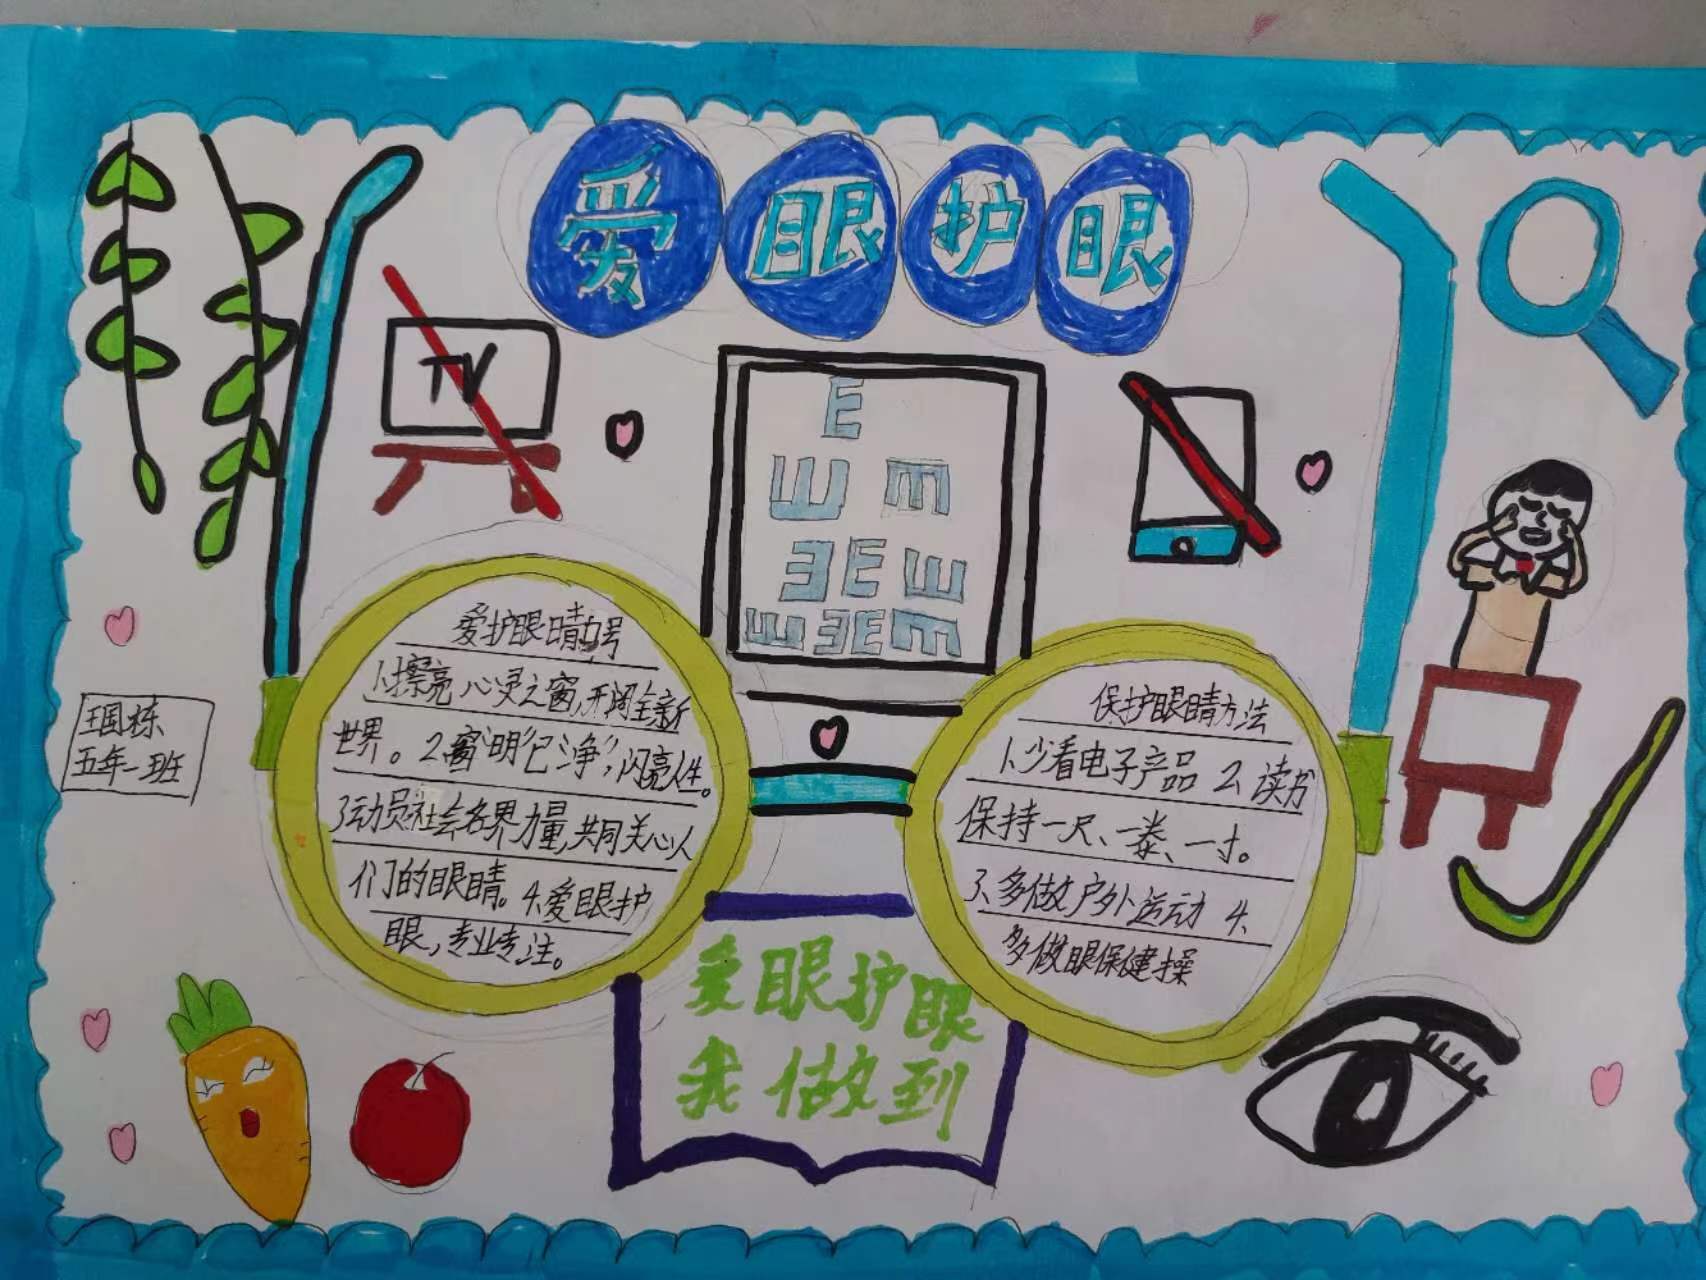 爱眼护眼
TV
E
E E
E E E
E E E E
爱护眼睛口号
1.擦亮心灵之窗,开阔全新
世界。2.窗“明”“已净”,闪亮人生。
3动员社会各界力量,共同关心人
们的眼睛。4.爱眼护
眼,专业专注。
保护眼睛方法
1.少看电子产品 2.读书
保持一尺、一拳、一寸。
3.多做户外运动 4.
多做眼保健操
王国栋
五年一班
爱眼护眼
我做到